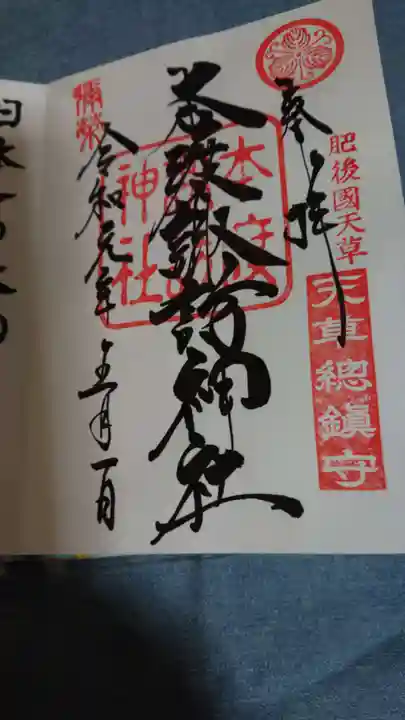 奉拝
肥後國天草
天草總鎮守
本渡諏訪神社
本渡
諏訪
神社
彌榮
令和元年五月一日
日本一